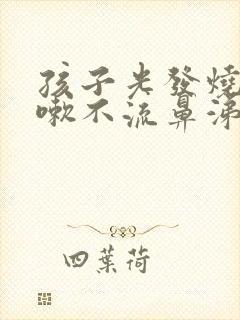 孩子光發燒
嗽不流鼻涕
四葉荷